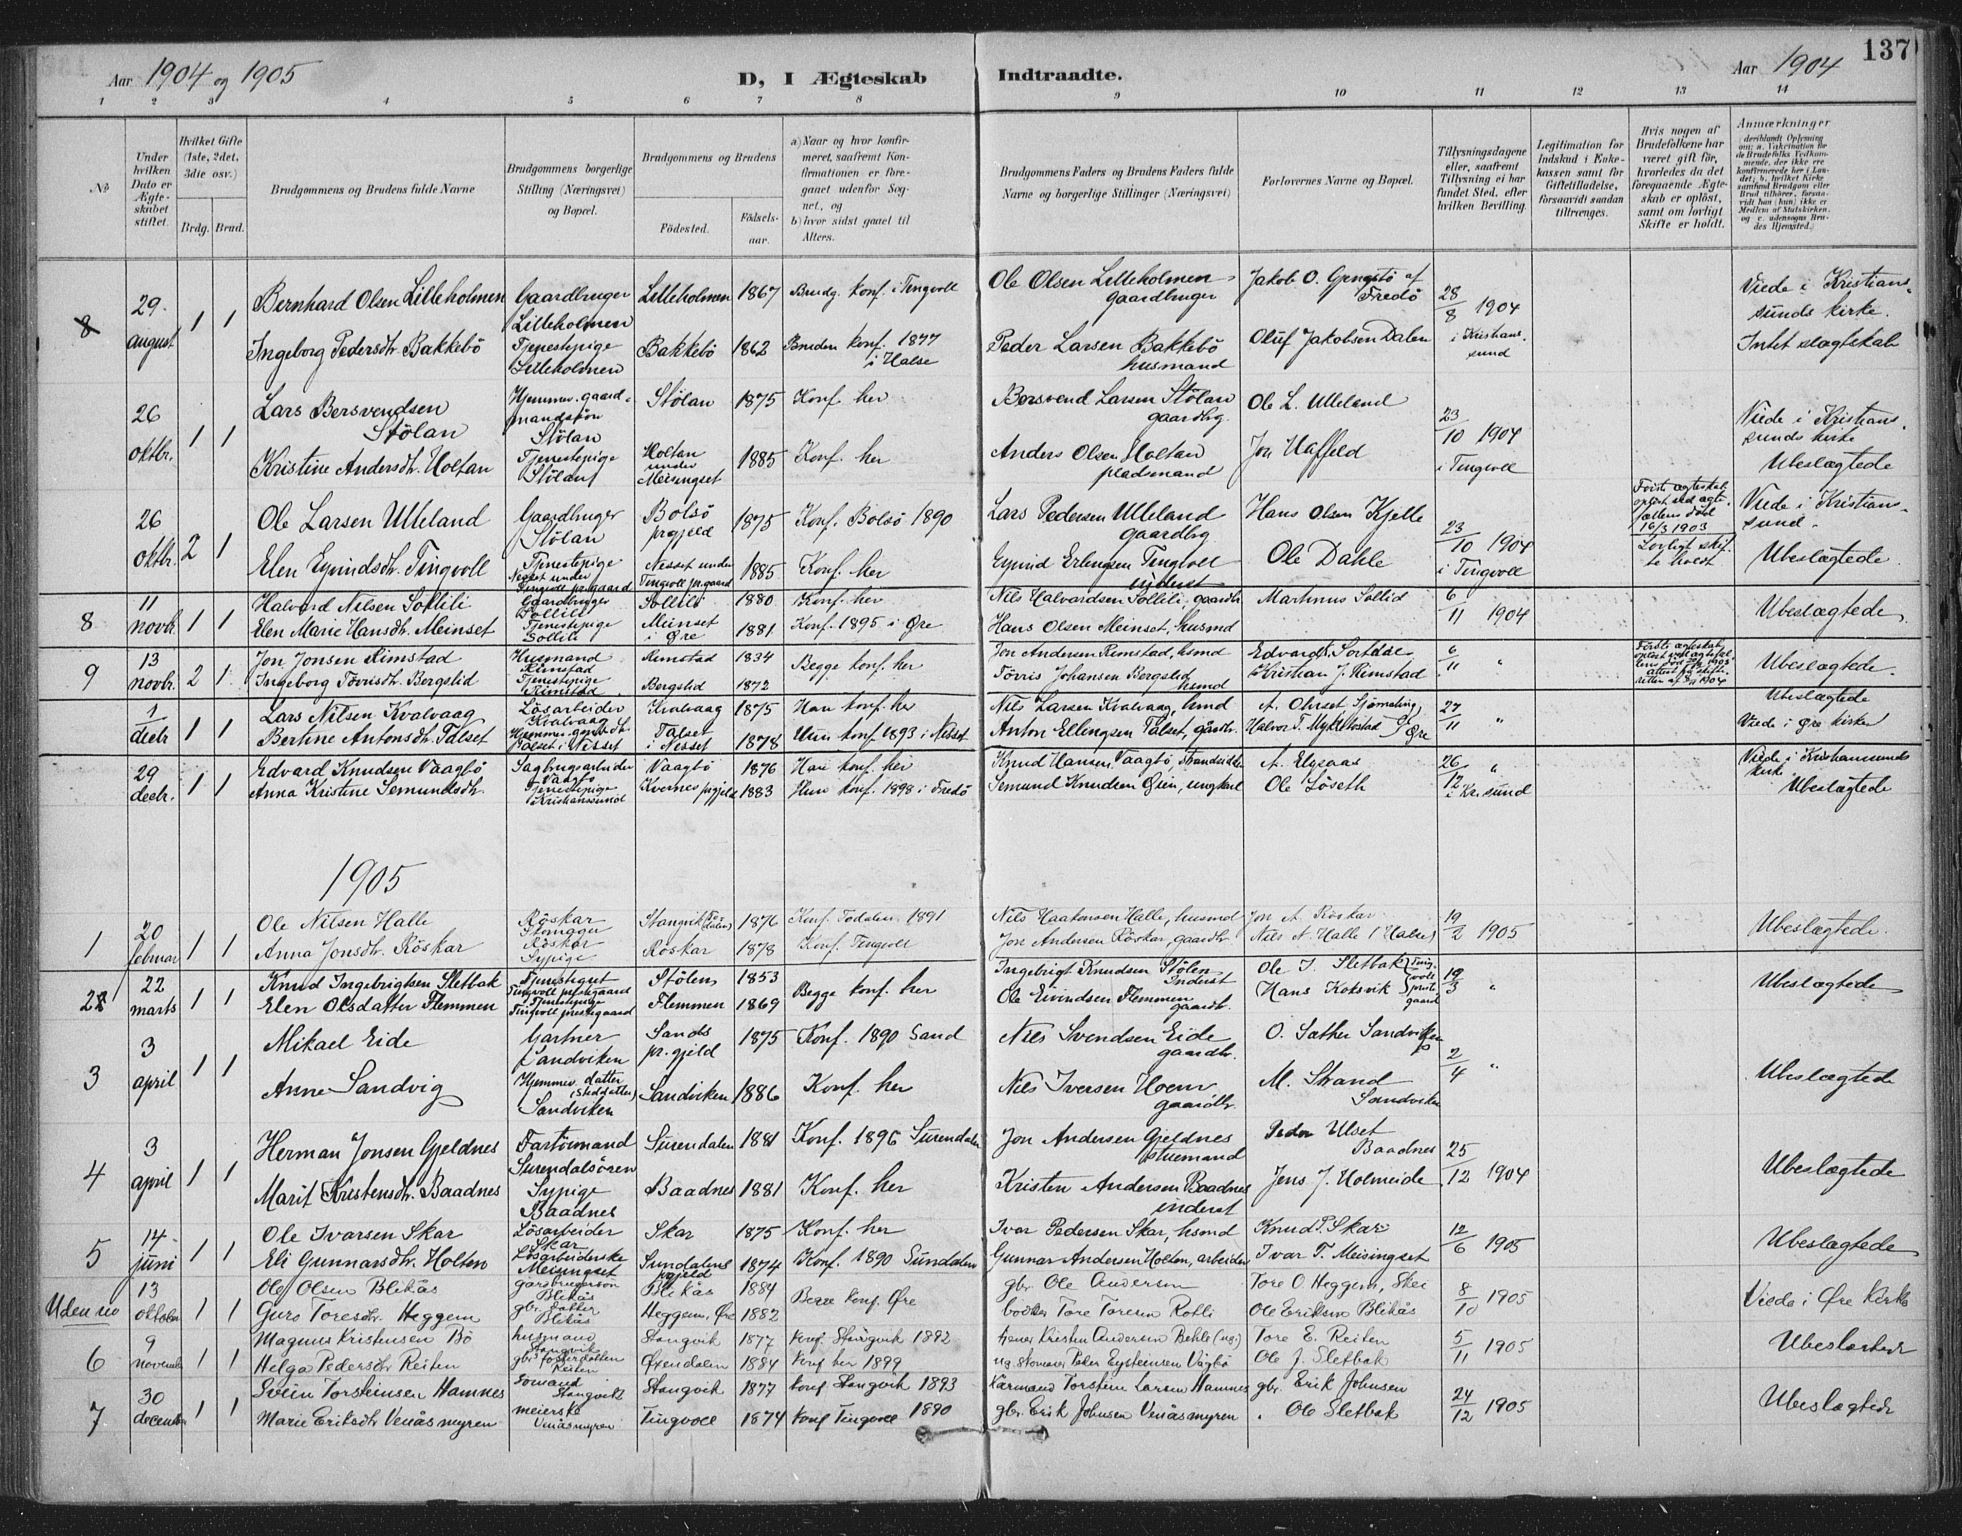 Aar 1904 og 1905
D, I Ægteskab Indtraadte.
Aar 1904
137
1 2 3 4 5 6 7 8 9 10 11 12 13 14
No
Under hvilken Dato er Ægteskabet stiftet.
Hvilket Gifte (1ste, 2det, 3die osv.)
Brdg. Brud.
Brudgommens og Brudens fulde Navne
Brudgommens borgerlige Stilling (Næringsvei) og Bopæl.
Brudgommens og Brudens
Fødested. Fødselsaar.
a) Naar og hvor konfirmeret, saafremt Konfirmationen er foregaaet udenfor Sognet, og
b) hvor sidst gaaet til Alters.
Brudgommens Faders og Brudens Faders fulde Navne og borgerlige Stillinger (Næringsvei)
Forlovernes Navne og Bopæl.
Tillysningsdagene eller, saafremt Tillysning ei har fundet Sted, efter hvilken Bevilling
Legitimation for Indskud i Enkekassen samt for Giftetilladelse, forsaavidt saadan tiltrænges.
Hvis nogen af Brudefolkene har været gift før, hvorledes da det foregaaende Ægteskab er opløst, samt om lovligt Skifte er holdt.
Anmærkninger
8 29 august 1 1
Bernhard Olsen Lilleholmen Gaardbruger Lilleholmen Lilleholmen 1867 Brudg. konf. i Tingvoll Ole Olsen Lilleholmen gaardbruger Jakob O. Gengstö af Fredö 28/8 1904 i Kristianssund Viede i Kristianssunds kirke.
Ingeborg Pedersdtr. Bakkebö Tjenestepige Lilleholmen Bakkebö 1862 Bruden konf. 1877 i Halse Peder Larsen Bakkebö husmand Oluf Jakobsen Dalen Intet slægtskab
26 oktbr. 1 1
Lars Bersvendsen Stölan Hjemmev. gaardmandssön Stölan Stölan 1875 Konf. her Bersvend Larsen Stölan gaardbrg. Ole L. Ulleland 23/10 1904 i Tingvoll Viede i Kristianssunds kirke
Kristine Andersdtr. Holtan Tjenestepige Stölan Holtan under Meisingset 1885 Konf. her Anders Olsen Holtan pladsmand Jon Haffeld Ubeslægtede
26 oktbr. 2 1
Ole Larsen Ulleland Gaardbruger Stölan Bolsö prgjeld 1875 Konf. Bolsö 1890 Lars Pedersen Ulleland gaardbrg Hans Olsen Kjelle 23/10 1904 i Tingvoll Förste ægteskab oplöst ved ægtefællens död 16/3 1903 Lovligt skifte holdt Viede i Kristianssund.
Elen Eyvindsdtr. Tingvoll Tjenestepige Nesset under Tingvoll pr.gaard Nesset under Tingvoll pr.gaard 1885 Konf. her Eyvind Erlingsen Tingvoll inderst Ole Dahle Ubeslægtede
8 11 novbr. 1 1
Halvard Nilsen Sollili Gaardbruger Sollili Sollili 1880 Konf. her Nils Halvardsen Sollili, gaardbr. Martinus Sollid 6/11 1904 Ubeslægtede
Elen Marie Hansdtr. Meinset Tjenestepige Sollili Meinset i Öre 1881 Konf. 1895 i Öre Hans Olsen Meinset, husmd
9 13 novbr. 2 1
Jon Jonsen Rimstad Husmand Rimstad Rimstad 1834 Begge konf. her Jon Andersen Rimstad, hsmd Edvard Sortdal 6/11 " Ubeslægtede
Ingeborg Törrisdtr. Bergslid Tjenestepige Rimstad Bergslid 1872 Törris Johansen Bergslid hsmd Kristian J. Rimstad
1 decbr. 1 1
Lars Nilsen Kvalvaag Lösarbeider Kvalvaag Kvalvaag 1875 Han konf. her Nils Larsen Kvalvaag, hmd A. Ohrset 27/11 " Ubeslægtede
Bertine Antonsdtr. Talset Talset i Nesset Talset i Nesset 1878 Hun konf. 1893 i Nesset Anton Ellingsen Talset, gårdbr. Halvor T. Myklebostad Öre Viede i Öre kirke
29 decbr. 1 1
Edvard Knudsen Vaagbö Sagbrugsarbeider Vaagbö Vaagbö 1876 Han konf. her Knud Hansen Vaagbö, Strandsidder A. Elgsaas 26/12 " i Kr.sund Viede i Kristianssunds kirke
Anna Kristine Semundsdtr. Tjenestepige Kristianssund Kvernes prgjeld 1883 Hun konf. 1898 i Fredö Semund Knudsen Öien, ungkarl Ole Löseth Ubeslægtede
1905
1 20 februar 1 1
Ole Nilsen Halle Röskar Stangvik (Todalen) 1876 Konf. Todalen 1891 Nils Haakonsen Halle, husmd Jon A. Röskar 19/2 1905 Ubeslægtede.
Anna Jonsdtr. Röskar Röskar Sypige Röskar 1878 Konf. Tingvoll Jon Andersen Röskar, gaardbr. Nils N. Halle (Halse)
2 22 marts 1 1
Knud Ingebrigtsen Sletbak Tjenestegut Tingvoll prestegaard Stölen 1853 Begge konf. her Ingebrigt Knudsen Stölen Inderst Ole I. Sletbak 19/3 " Ubeslægtede
Elen Olsdatter Flemmen Tjenestepige Tingvoll prestegaard Flemmen 1869 Ole Eivindsen Flemmen gaardbr. Hans Koksvik
3 3 april 1 1
Mikael Eide Gartner Sandviken Sands pr.gjeld 1875 Konf. 1890 Sand Nils Svendsen Eide gaardbr. O. Sæther Sandviken 2/4 " Ubeslægtede
Anne Sandvig Hjemmev. datter (Steddatter) Sandviken Sandviken 1886 Konf. her Nils Iversen Hoem gaardbr. M. Strand Sandviken
4 3 april 1 1
Herman Jonsen Gjeldnes Fartöimand Surendalsören Surendalen 1881 Konf. 1896 Surendalen Jon Andersen Gjeldnes stuemand Peder Ulset Baadnes 25/12 1904 Ubeslægtede
Marit Kristensdtr. Baadnes Sypige Baadnes Baadnes 1881 Konf. her Kristen Andersen Baadnes inderst Jens J. Holmeide
5 14 juni 1 1
Ole Ivarsen Skar Lösarbeider Skar Skar 1875 Konf. her Ivar Pedersen Skar, hsmd Knud P. Skar 12/6 1905 Ubeslægtede
Eli Gunnarsdtr. Holten Lösarbeiderske Meisingset Sundalens prgjeld 1874 Konf. 1890 Sundalen Gunnar Andersen Holten, arbeider Ivar T. Meisingset
Uden no 13 oktober 1 1
Olaf Olsen Blikås gårdbrugersön Blikås Blikås 1884 Begge konf. Öre gbr. Ole Andersen Tore O. Heggem, Skei 8/10 1905 Viede i Öre Kirke
Guro Toresdtr. Heggem gbr. datter Blikås Heggem, Öre 1882 Tore Toresen Rotli Ole Eriksen Blikås
6 9 november 1 1
Magnus Kristensen Bö husmand Stangvik Stangvik 1877 Konf Stangvik 1892 Kristen Andersen Behle Tore E. Reiten 5/11 1905 Ubeslægtede
Helga Pedersdtr Reiten gbr. fosterdatter Reiten Öxendalen 1884 Konf her 1899 Peder Eysteinsen Vågbö Ole J. Sletbak
7 30 december 1 1
Svein Torsteinsen Hamnes Somand Stangvik Stangvik 1877 Konf Stangvik 1893 Torstein Larsen Hamnes gbr. Erik Johnsen 24/12 1905 Ubeslægtede
Marie Eriksdtr Venåsmyren meierske Venåsmyren Tingvoll 1874 Konf Tingvoll 1890 gbr. Erik Johnsen Venåsmyren Ole Sletbak